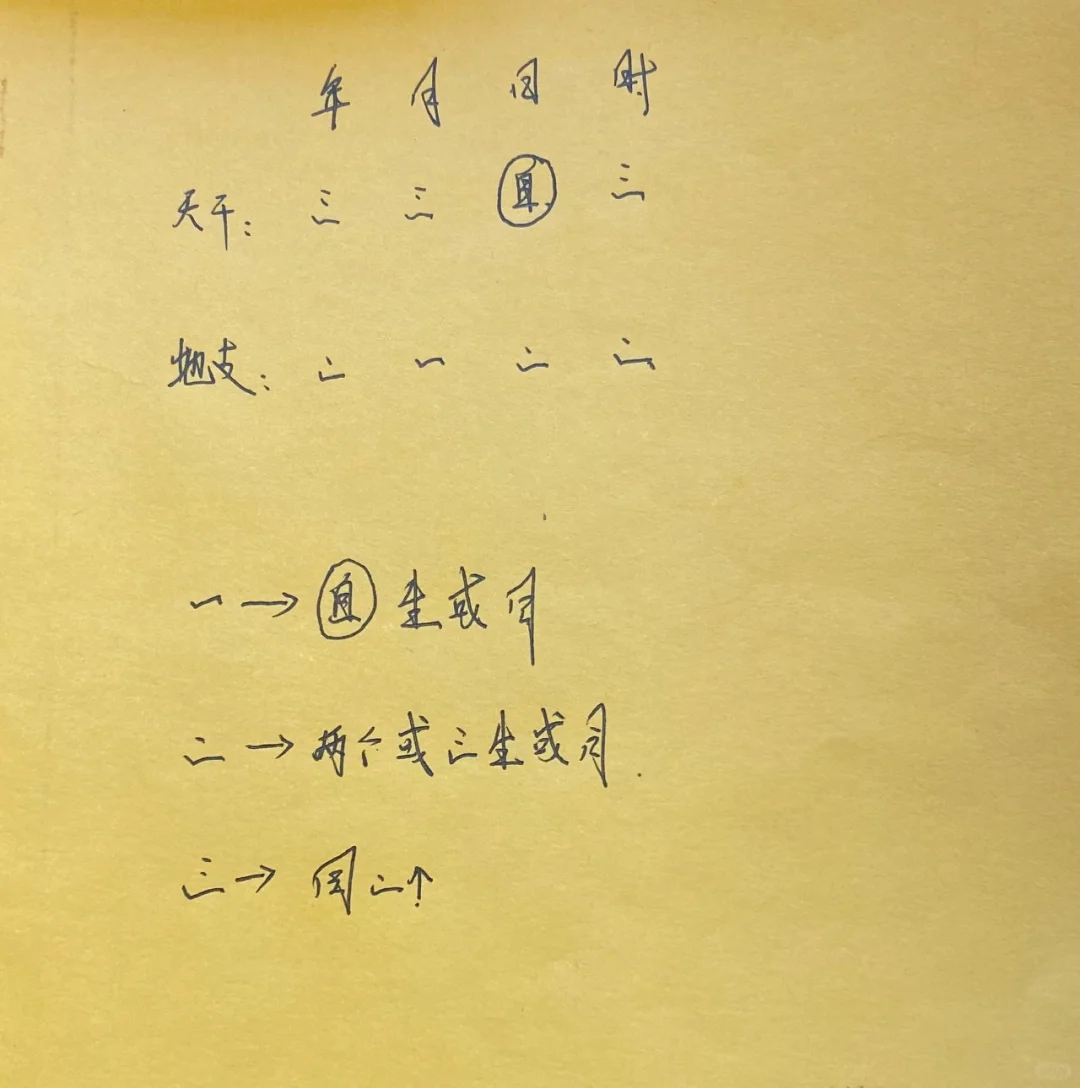 年 月 日 时
天干: 三 三 三
地支: 二 一 二 二
一 → 生或同
二 → 两个或三生或同.
三 → 同二个